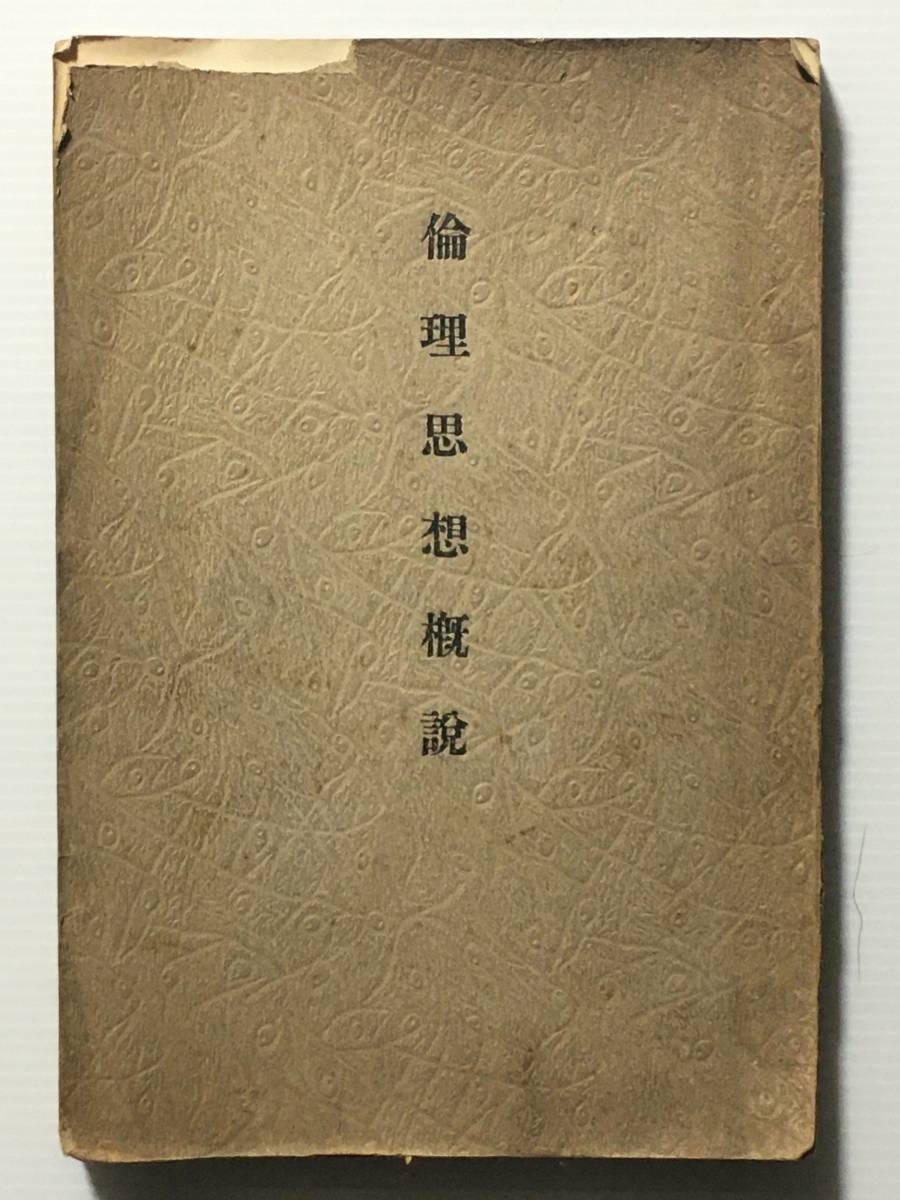 倫理思想槪說